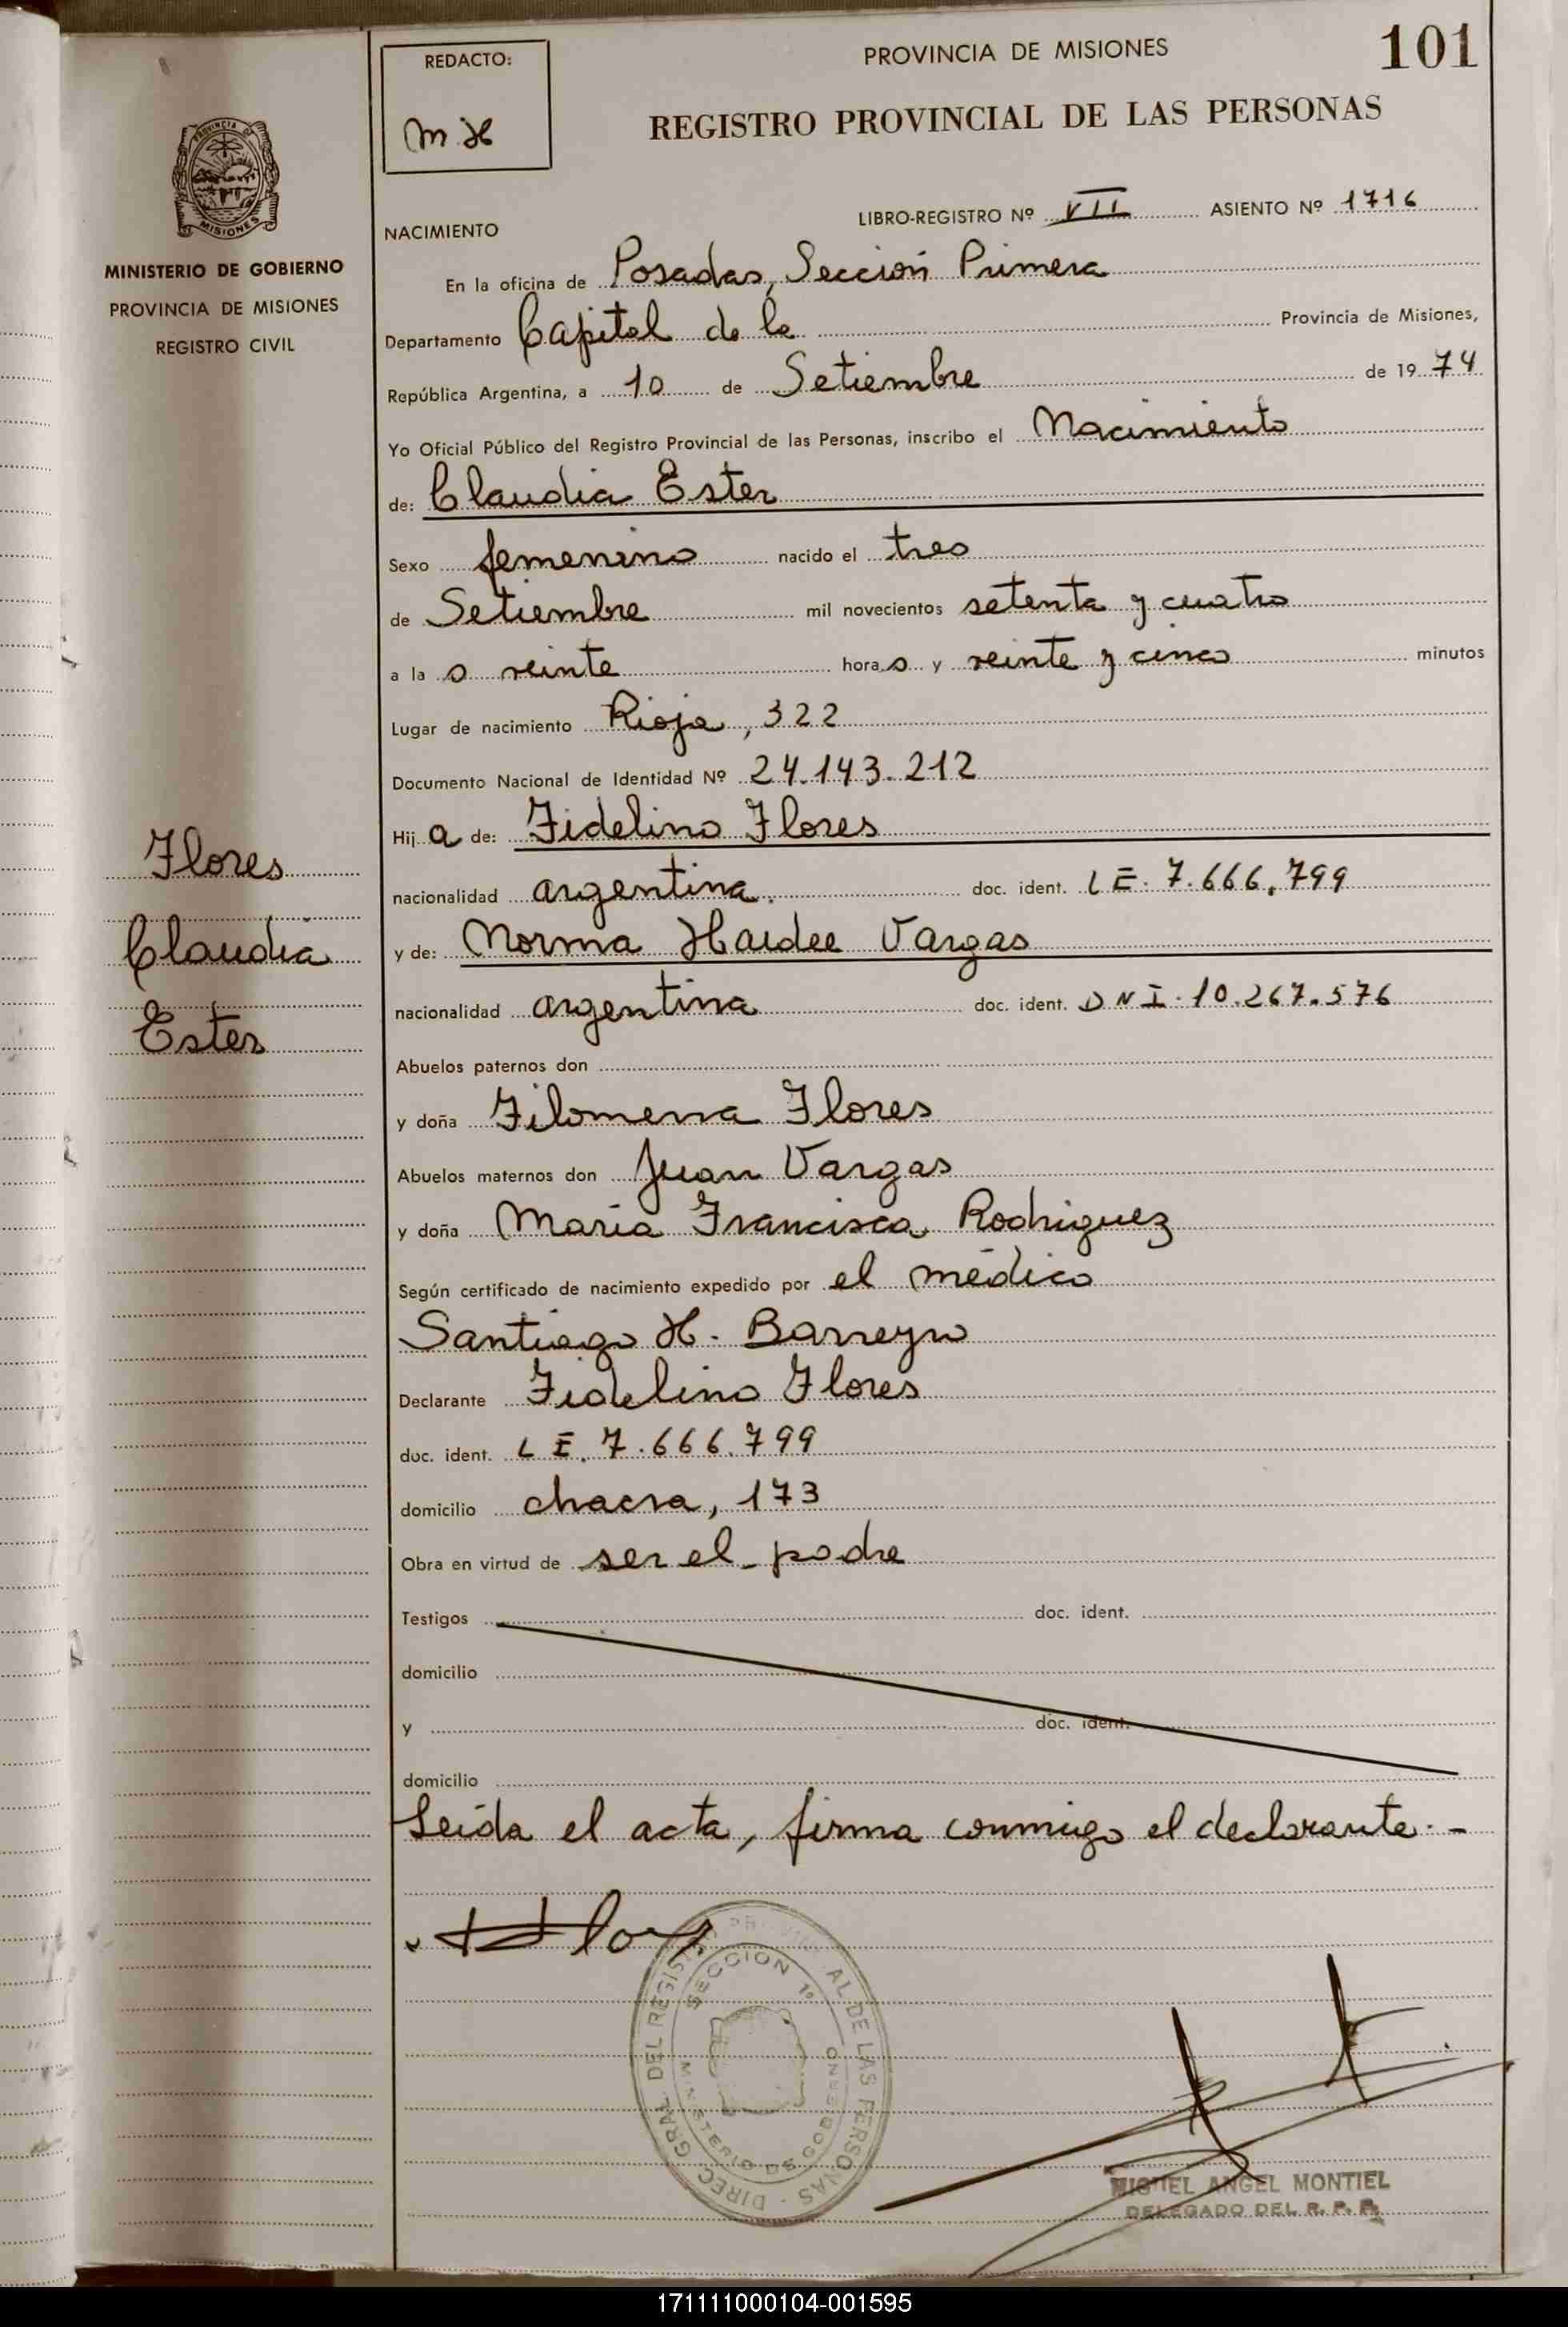 REDACTO:
M.H
PROVINCIA DE MISIONES
101
REGISTRO PROVINCIAL DE LAS PERSONAS
PROVINCIA DE
MISIONES
MINISTERIO DE GOBIERNO
PROVINCIA DE MISIONES
REGISTRO CIVIL
Flores
Claudia
Ester
NACIMIENTO
LIBRO-REGISTRO Nº VII ASIENTO Nº 1716
En la oficina de Posadas, Sección Primera
Departamento Capital de la Provincia de Misiones,
República Argentina, a 10 de Setiembre de 1974
Yo Oficial Público del Registro Provincial de las Personas, inscribo el Nacimiento
de: Claudia Ester
Sexo femenino nacido el tres
de Setiembre mil novecientos setenta y cuatro
a la s veinte hora s y veinte y cinco minutos
Lugar de nacimiento Rioja, 322
Documento Nacional de Identidad Nº 24.143.212
Hij a de: Fidelino Flores
nacionalidad argentina. doc. ident. L E. 7.666.799
y de: Norma Haidee Vargas
nacionalidad argentina doc. ident. D N I. 10.267.576
Abuelos paternos don
y doña Filomena Flores
Abuelos maternos don Juan Vargas
y doña María Francisca Rodriguez
Según certificado de nacimiento expedido por el médico
Santiago H. Barreyro
Declarante Fidelino Flores
doc. ident. L E. 7.666.799
domicilio chacra, 173
Obra en virtud de ser el padre
Testigos doc. ident.
domicilio
y doc. ident.
domicilio
Leída el acta, firma conmigo el declarante.-
SECCION 1º
MINISTERIO DE GOBIERNO
DIREC. GRAL. DEL REGISTRO PROVINCIAL DE LAS PERSONAS
MIGUEL ANGEL MONTIEL
DELEGADO DEL R. P. P.
171111000104-001595